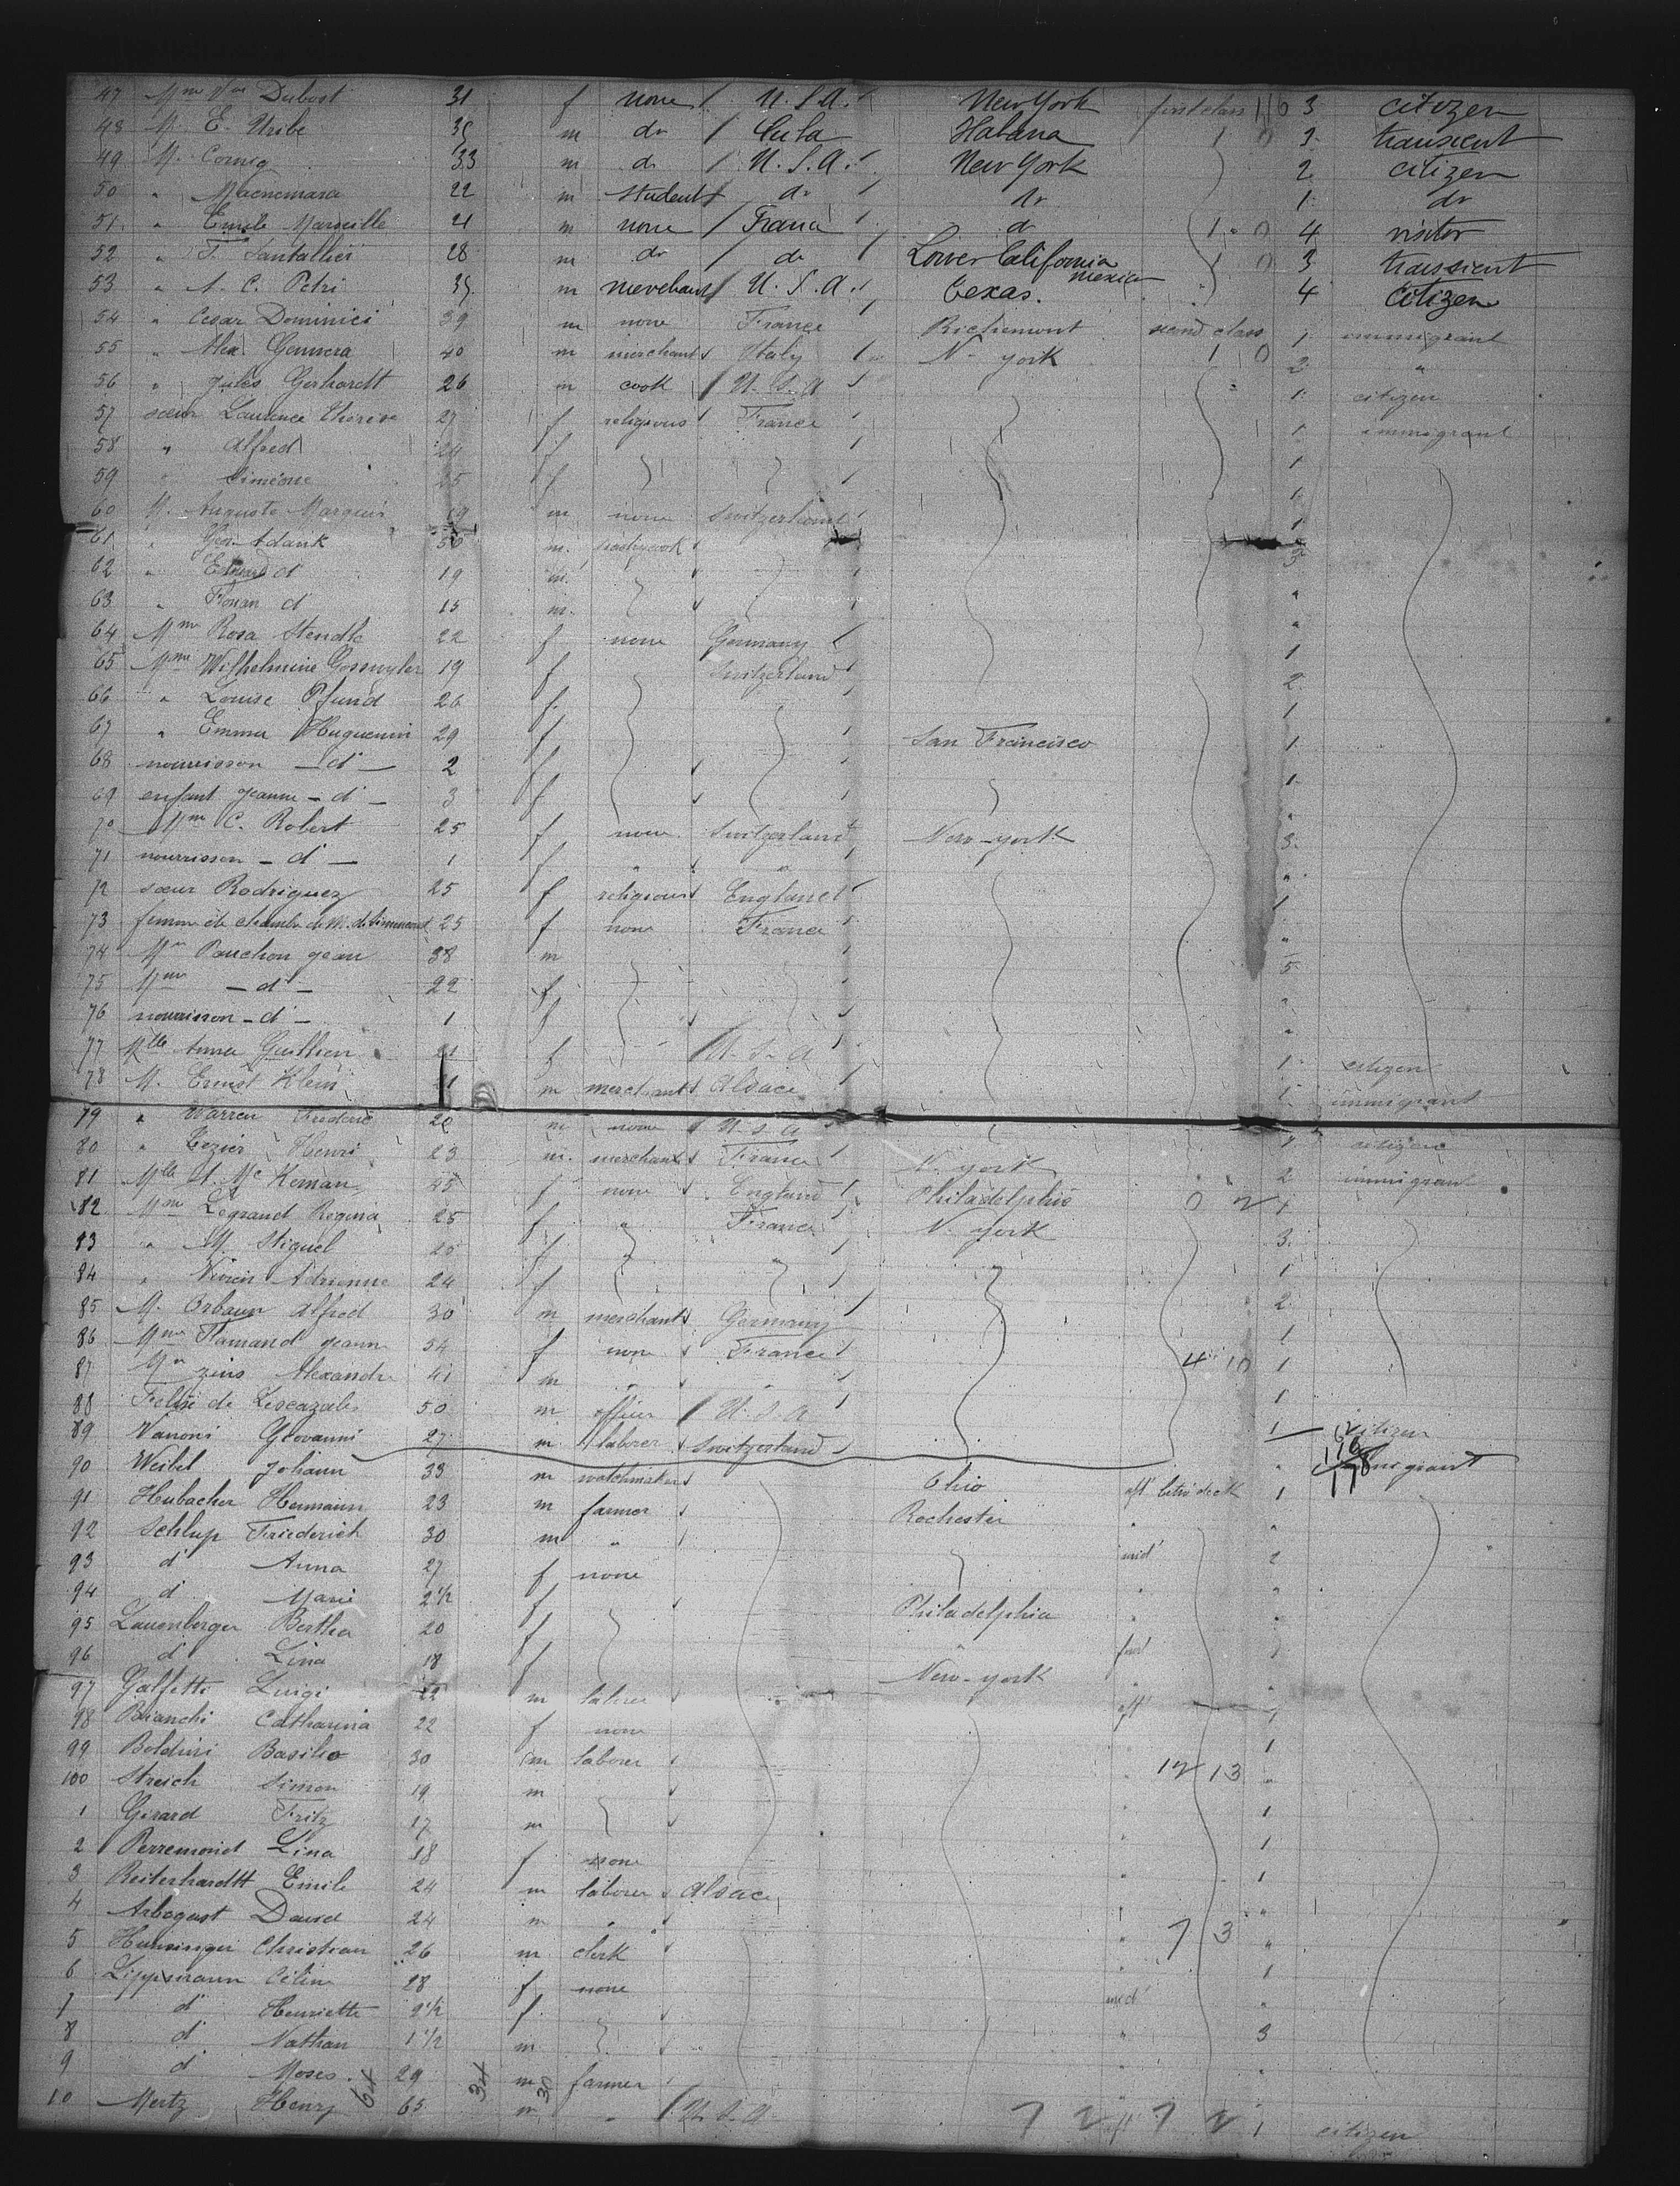 47 Mme Vve Dubost 31 f none U.S.A. New York first class 3 citizen
48 M. E. Uribe 35 m do Cuba Habana 1 0 3 transient
49 M. Cornig 33 m do U.S.A. New York 2 citizen
50 " Macnemara 22 m student do do 1 do
51 " Emile Marseille 21 m none France do 1 0 4 visitor
52 " F. Santallier 28 m do do Lower California Mexico 1 0 3 transient
53 " A. C. Petri 35 m merchant U.S.A. Texas. 4 Citizen
54 " Cesar Dominici 39 m none France Richemont second class 1 immigrant
55 " Alex. 40 m merchant Italy N-york 1 0 2 "
56 " Jules Gerhardt 26 m cook U.S.A 1 citizen
57 sœur Laurence Thérèse 27 f religious France 1 immigrant
58 " Alfred 24 f 1
59 " Siméone 25 f 1
60 M. Auguste Marquis 19 m none Switzerland 1
61 " Geo. Adank 56 m. pastrycook 3
62 " Edward do 19 m. "
63 " Florian do 15 m. "
64 Mme Rosa Stendle 22 f none Germany 1
65 Mme Wilhelmine 19 f Switzerland 2
66 " Louise Pfund 26 f. 1
67 " Emma Huguenin 29 f San Francisco 1
68 nourrisson - do - 2 f
69 enfant Jeanne - do - 3 f "
70 Mme C. Robert 25 f none Switzerland New-york 3
71 nourrisson - do - 1 f " " "
72 sœur Rodriguez 25 f religious England 1
73 femme de chambre de M. 25 f none France "
74 Mr Pauchon Jean 38 m 5
75 Mme - do - 22 f "
76 nourrisson - do - 1 f "
77 Mlle Anna Guillien 21 f U.S.A 1 citizen
78 M. Ernest Klein 21 m merchant Alsace 1 immigrant
79 " Warren Frederic 20 m none U.S.A 1 citizen
80 " Tezier Henri 23 m. merchant France N. york 2 immigrant
81 Mlle A. Mc Kernan 45 f none England Philadelphie 0 2 1
82 Mme Legrand Regina 25 f " France N. york 3
83 " M. Miguel 25 f 1
84 " Adrienne 24 f 2
85 M. Orbaun Alfred 30 m merchant Germany 1
86 Mme Flamand Jeanne 54 f none France 1
87 Mr Zins Alexandre 41 m " " 4 10 1
88 Felix de Lescazales 50 m officer U.S.A 1 citizen
89 Vanoni Giovanni 27 m laborer Switzerland immigrant
90 Weibel Johann 33 m watchmaker Ohio aft betw deck 1
91 Hubacher Hermann 23 m farmer Rochester " "
92 Schlup Friederich 30 m " mid 2
93 do Anna 27 f none "
94 do Marie 2 1/2 f Philadelphia " "
95 Lauenberger Bertha 20 f fwd 1
96 do Lina 18 f New-york "
97 Galfetti Luigi 22 m laborer aft 1
98 Bianchi Catharina 22 f none 1
99 Boldini Basilio 30 m laborer " 12 13 "
100 Streich Simon 19 m " 1
1 Girard Fritz 17 m " 1
2 Perremond Lina 18 f none " 1
3 Reiterhardtt Emile 24 m laborer Alsace "
4 Arbogast David 24 m " " 7 3 "
5 Hunsinger Christian 26 m clerk " 1
6 Lippmann Céline 28 f none mid "
7 do Henriette 2 1/2 f. " 3
8 do Nathan 1 1/2 m "
9 do Moses. 29 m farmer "
10 Mertz Henry 65 m " U.S.A. 7 2 aft 7 2 1 citizen
64 34 30